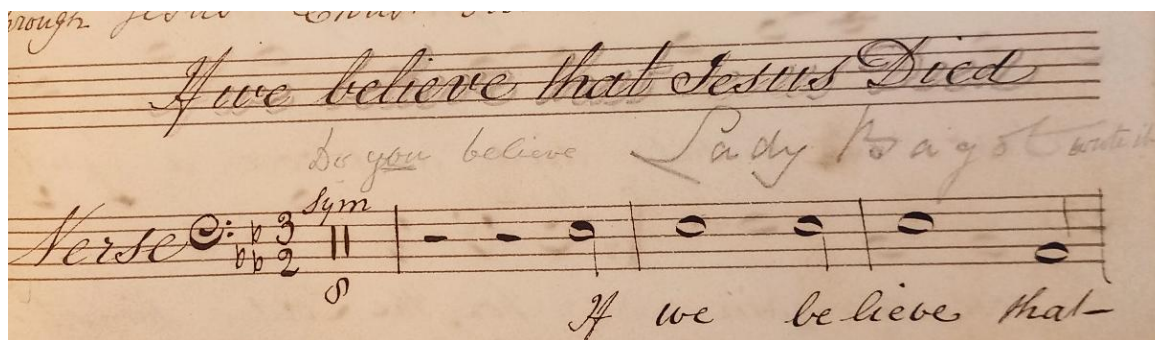 through Jesus Christ
If we believe that Jesus Died
Do you believe Lady Bagot wrote it
Verse 3 2 sym 8
If we be lieve that